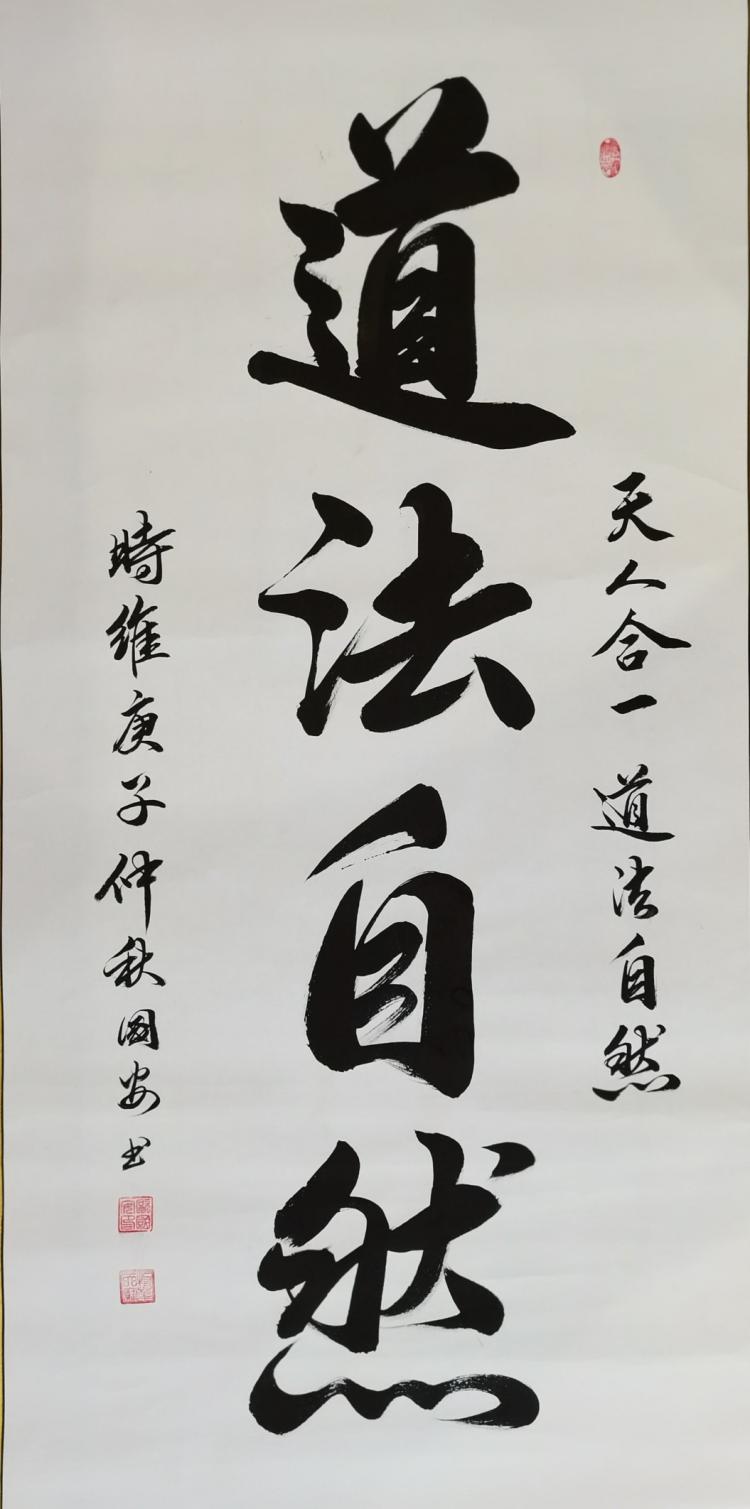 天人合一 道法自然
道法自然
時維庚子仲秋國安书